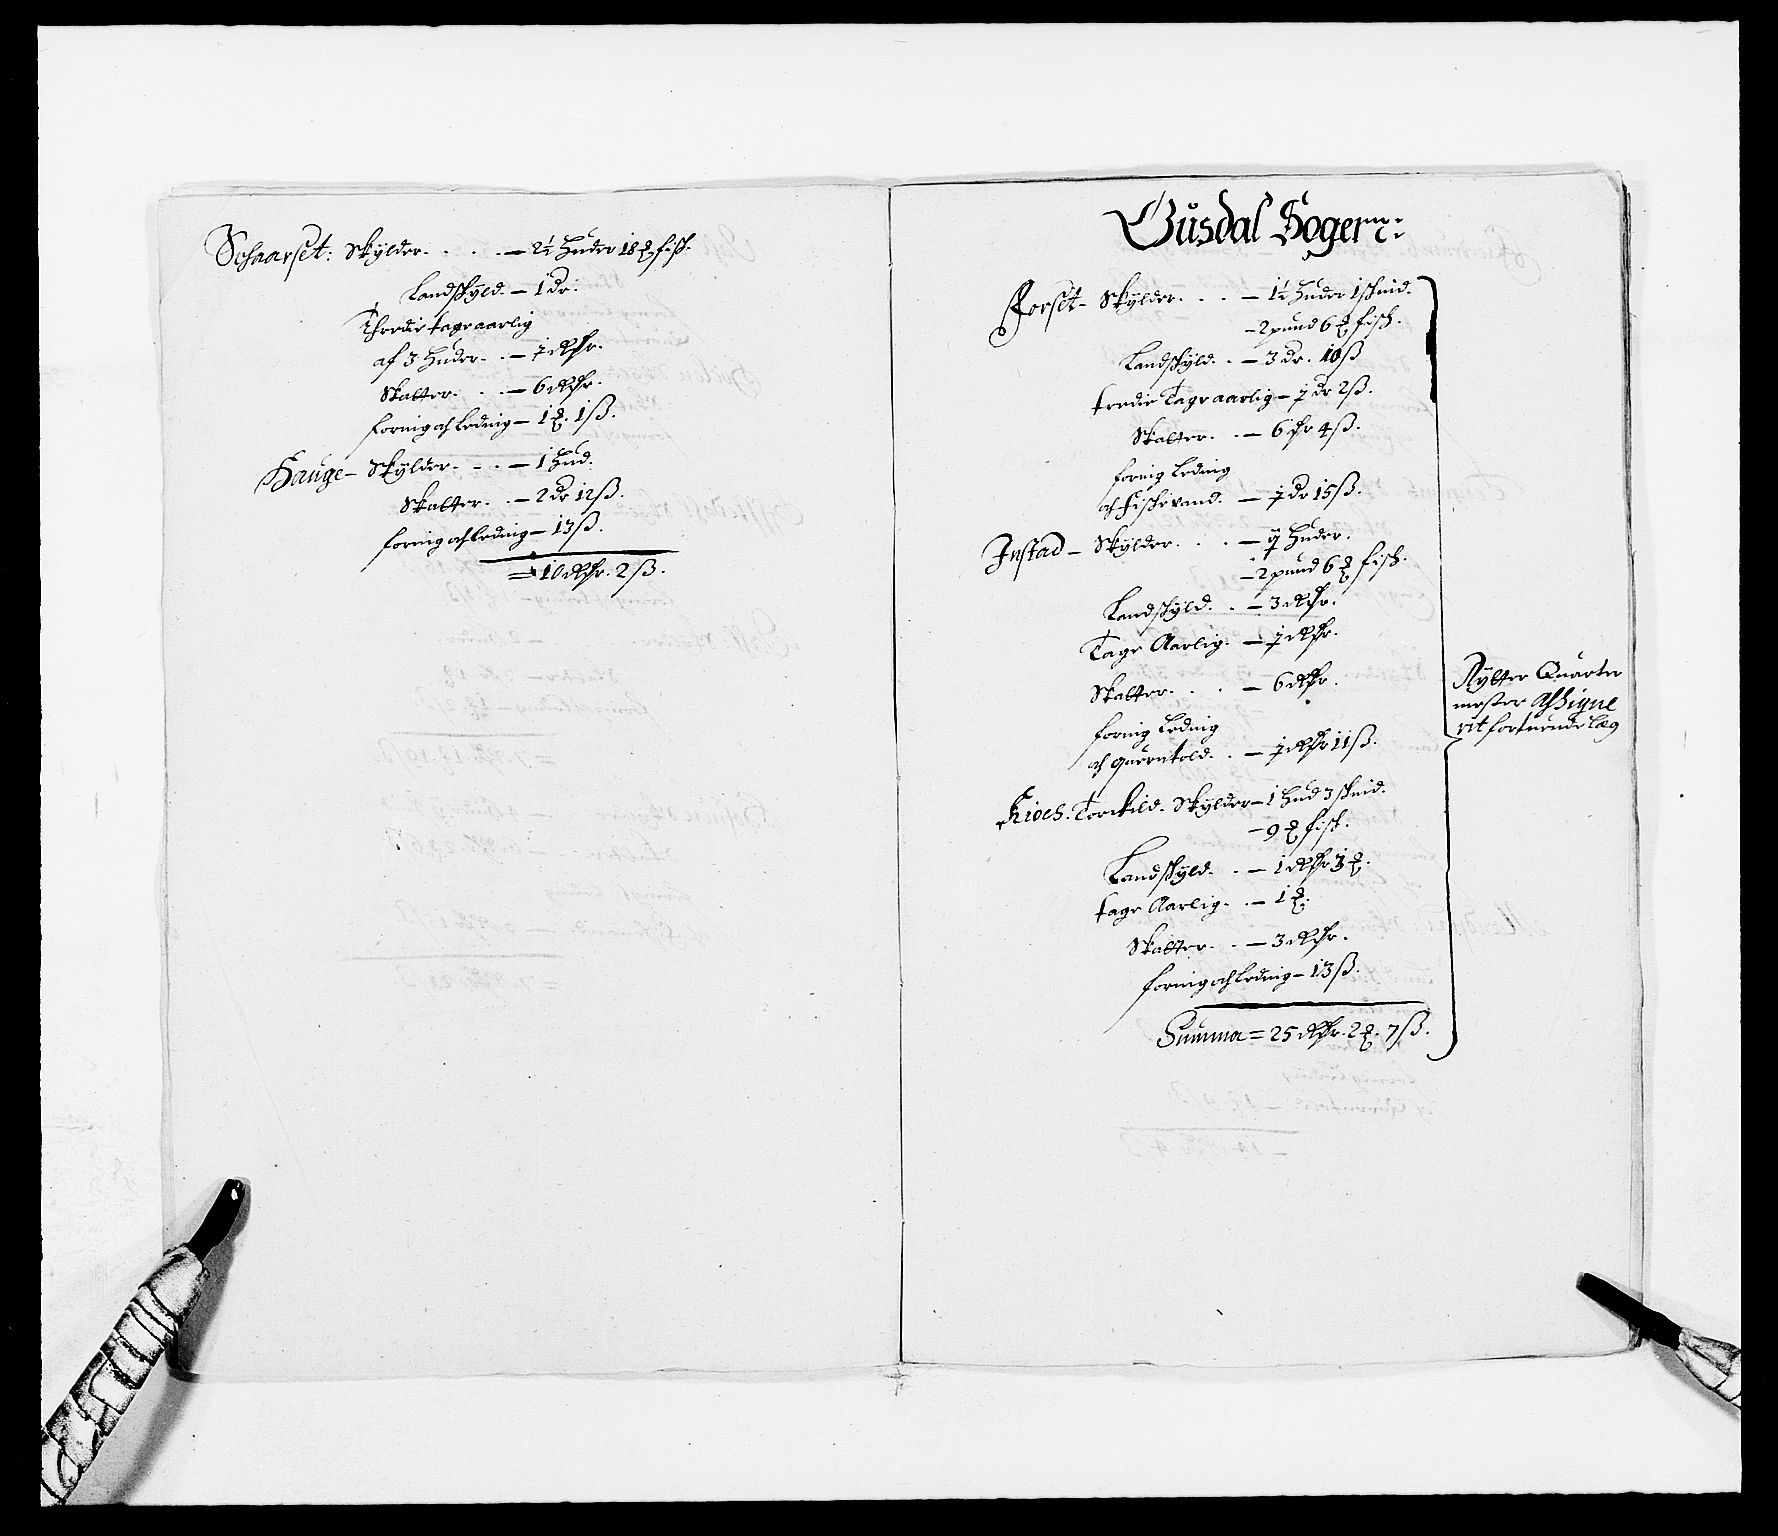 Schaarset: Skylder. . . . — 2½ Huder 18 ℔ fisk.
Landskyld. — 1 dr:
Thredie tage aarlig
af 3 Huder. . — ½ Rdr.
Skatter. . . — 6 Rdr.
foring och Leding — 1 ℔. 1 ß.
Hauge — Skylder. . . — 1 Hud.
Skatter. . — 2 dr 12 ß.
foring och Leding — 13 ß.
= 10 Rdr. 2 ß.
Gusdal Sogen:
Forset — Skylder. . . — 1½ Huder 1 skind.
— 2 pund 6 ℔ fisk.
Landskyld. . — 3 dr. 10 ß
tredie Tage aarlig — ½ dr 2 ß.
Skatter. . — 6 dr 4 ß.
foring Leding
och fiskevand. — ½ dr 15 ß.
Instad — Skylder. . . — Huder.
— 2 pund 6 ℔ fisk.
Landskyld. . — 3 Rdr.
Tage Aarlig. — ½ Rdr.
Skatter. . . — 6 Rdr.
foring Leding
och Querntold. . — ½ Rdr 11 ß.
Kioes. Torckild. Skylder — 1 Hud 3 skind.
— 9 ℔ fisk.
Landskyld. . — 1 Rdr 3 ℔.
tage Aarlig. . — 1 ℔.
Skatter. . — 3 Rdr.
foring och Leding — 13 ß.
Summa = 25 Rdr. 2 ℔. 7 ß.
Rytter Quarteer
mester Assigne
rit forneunde læg